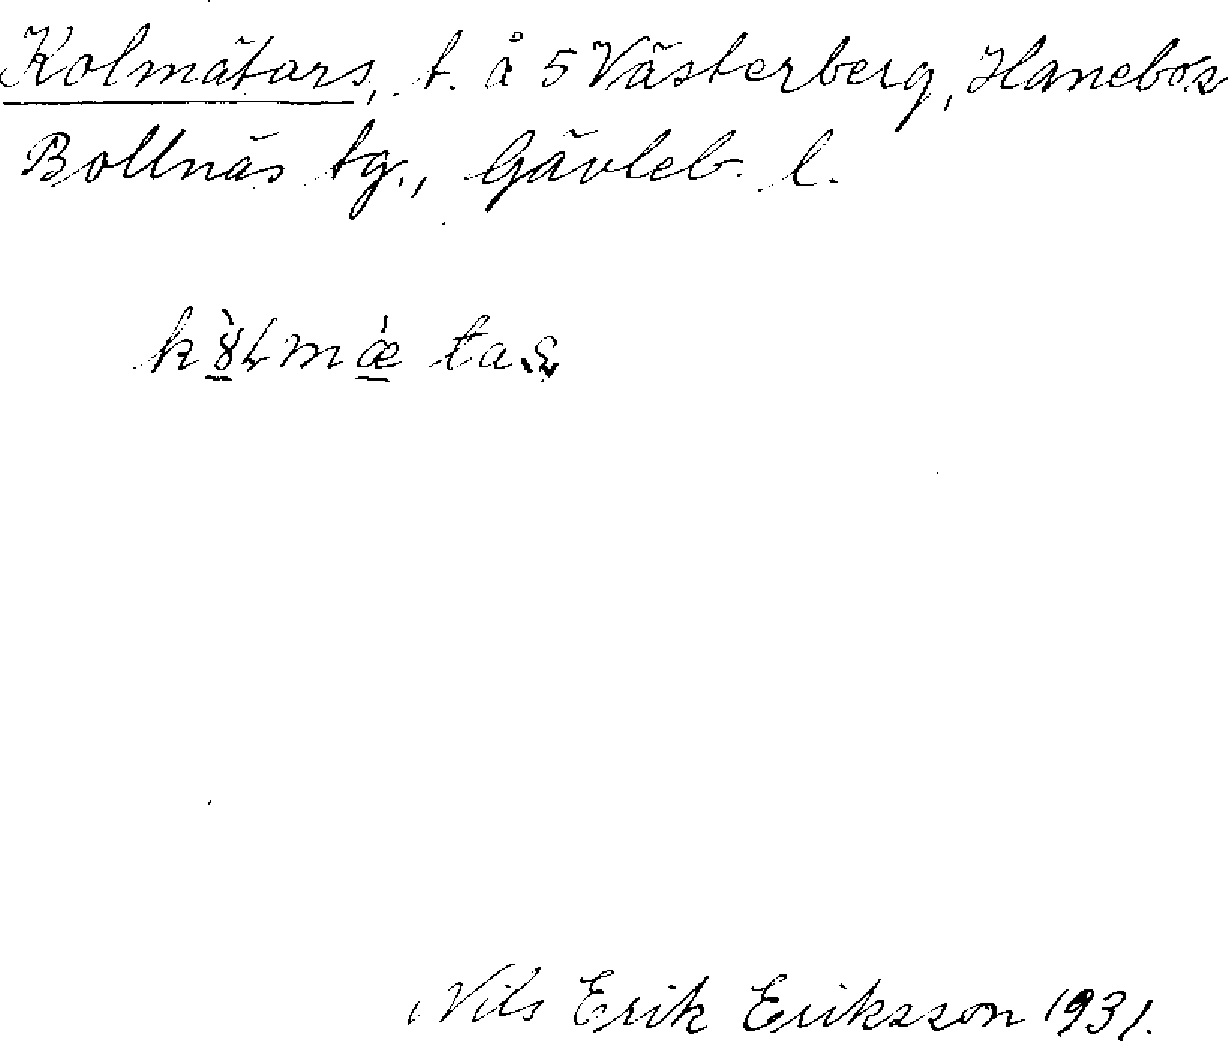 Kolmätars, t. å 5 Västerberg, Hanebo s
Bollnäs tg., Gävleb. l.
Nils Erik Eriksson 1931.